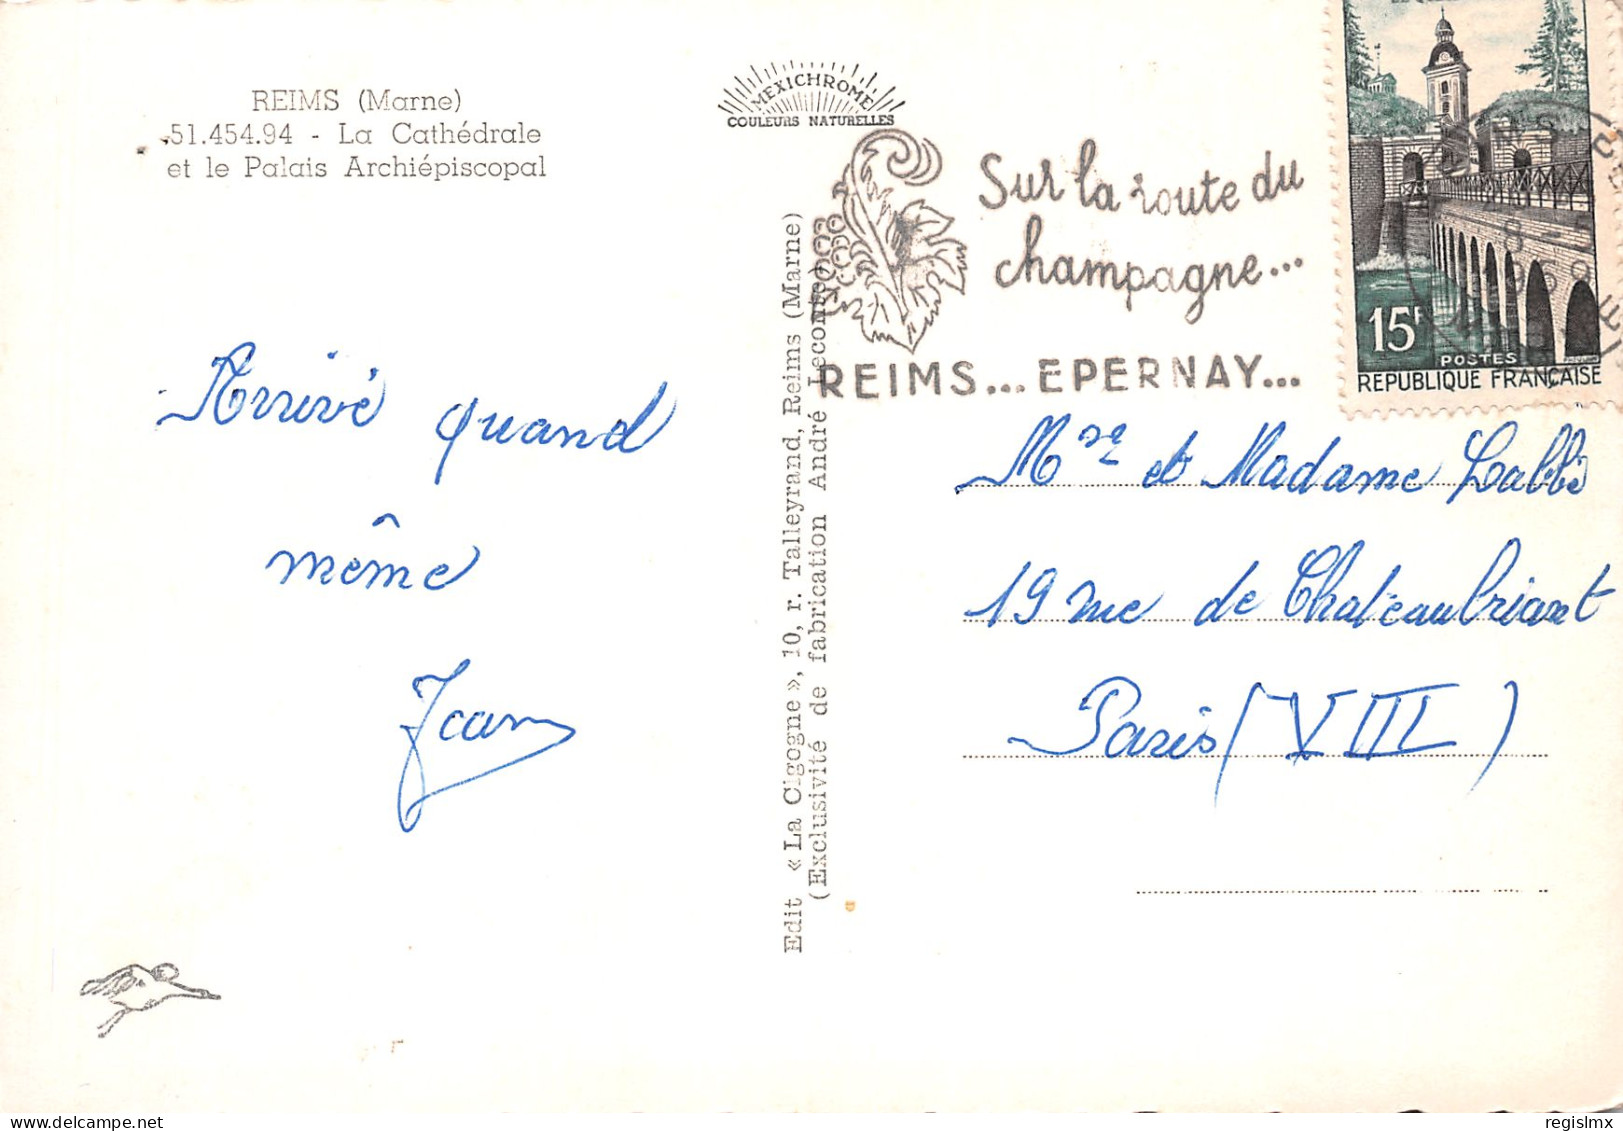 REIMS (Marne)
51.454.94 - La Cathédrale
et le Palais Archiépiscopal
MEXICHROME
COULEURS NATURELLES
Sur la route du
champagne...
REIMS... EPERNAY...
15F
POSTES
REPUBLIQUE FRANÇAISE
Edit « La Cigogne », 10, r. Talleyrand, Reims (Marne)
(Exclusivité de fabrication André Leconte)
Arrivé quand
même
Jean
Mr et Madame Labbé
19 rue de Chateaubriant
Paris (VIII)
delcampe.net
regislmx